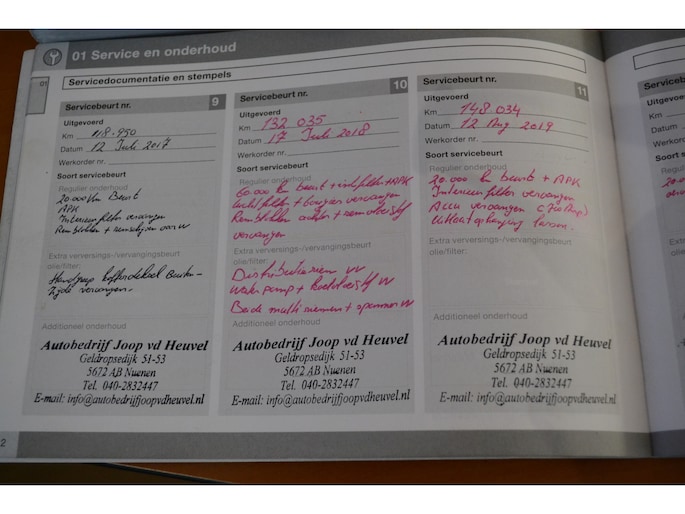 01 Service en onderhoud
01
Servicedocumentatie en stempels
Servicebeurt nr. 9
Uitgevoerd
Km 118.950
Datum 12 Juli 2017
Werkorder nr.
Soort servicebeurt
Regulier onderhoud
20.000 Km Beurt
APK
Interieurfilter vervangen
Remblokken + remschijven voor VV
Extra verversings-/vervangingsbeurt
olie/filter:
Handgreep kofferdeksel Buiten-
zijde vervangen.
Additioneel onderhoud
Autobedrijf Joop vd Heuvel
Geldropsedijk 51-53
5672 AB Nuenen
Tel. 040-2832447
E-mail: info@autobedrijfjoopvdheuvel.nl
Servicebeurt nr. 10
Uitgevoerd
Km 132 035
Datum 17 Juli 2018
Werkorder nr.
Soort servicebeurt
Regulier onderhoud
60.000 Km beurt + intfilter + APK
Luchtfilter + bougies vervangen
Remblokken achter + remvloeistof
vervangen
Extra verversings-/vervangingsbeurt
olie/filter:
Distributieriem VV
Waterpomp + koelvloeistof VV
Beide multiriemen + spanner VV
Additioneel onderhoud
Autobedrijf Joop vd Heuvel
Geldropsedijk 51-53
5672 AB Nuenen
Tel. 040-2832447
E-mail: info@autobedrijfjoopvdheuvel.nl
Servicebeurt nr. 11
Uitgevoerd
Km 148 034
Datum 12 Aug 2019
Werkorder nr.
Soort servicebeurt
Regulier onderhoud
20.000 Km Beurt + APK
Interieurfilter vervangen
Accu vervangen
Uitlaat ophanging
Extra verversings-/vervangingsbeurt
olie/filter:
Additioneel onderhoud
Autobedrijf Joop vd Heuvel
Geldropsedijk 51-53
5672 AB Nuenen
Tel. 040-2832447
E-mail: info@autobedrijfjoopvdheuvel.nl
2